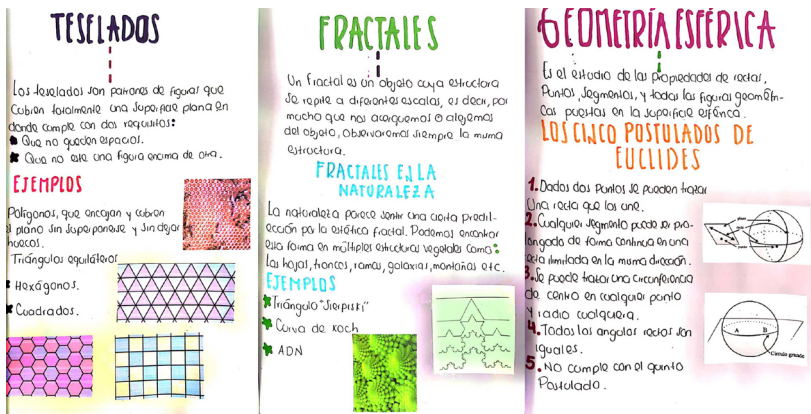 TESELADOS
Los teselados son patrones de figuras que
cubren totalmente una superficie plana en
donde cumple con dos requisitos:
Que no queden espacios.
Que no este una figura encima de otra.
EJEMPLOS
Polígonos, que encajan y cubren
el plano sin superponerse y sin dejar
huecos.
Triángulos equiláteros
Hexágonos.
Cuadrados.
FRACTALES
Un fractal es un objeto cuya estructura
se repite a diferentes escalas, es decir, por
mucho que nos acerquemos o alejemos
del objeto, observaremos siempre la misma
estructura.
FRACTALES EN LA
NATURALEZA
La naturaleza parece sentir una cierta predil-
ección por la estética fractal. Podemos encontrar
esta forma en múltiples estructuras vegetales como:
Las hojas, troncos, ramas, galaxias, montañas etc.
EJEMPLOS
Triángulo "Sierpiski"
Curva de Koch
ADN
GEOMETRÍA ESFÉRICA
Es el estudio de las propiedades de rectas,
Puntos, Segmentos, y todas las figuras geométri-
cas puestas en la superficie esférica.
LOS CINCO POSTULADOS DE
EUCLIDES
1. Dados dos puntos se pueden trazar
Una recta que los une.
2. Cualquier segmento puede ser pro-
longado de forma continua en una
recta ilimitada en la misma dirección.
3. Se puede trazar una circunferencia
de centro en cualquier punto
y radio cualquiera.
4. Todos los angulos rectos son
iguales.
5. No cumple con el quinto
Postulado.
A B
Círculo grande